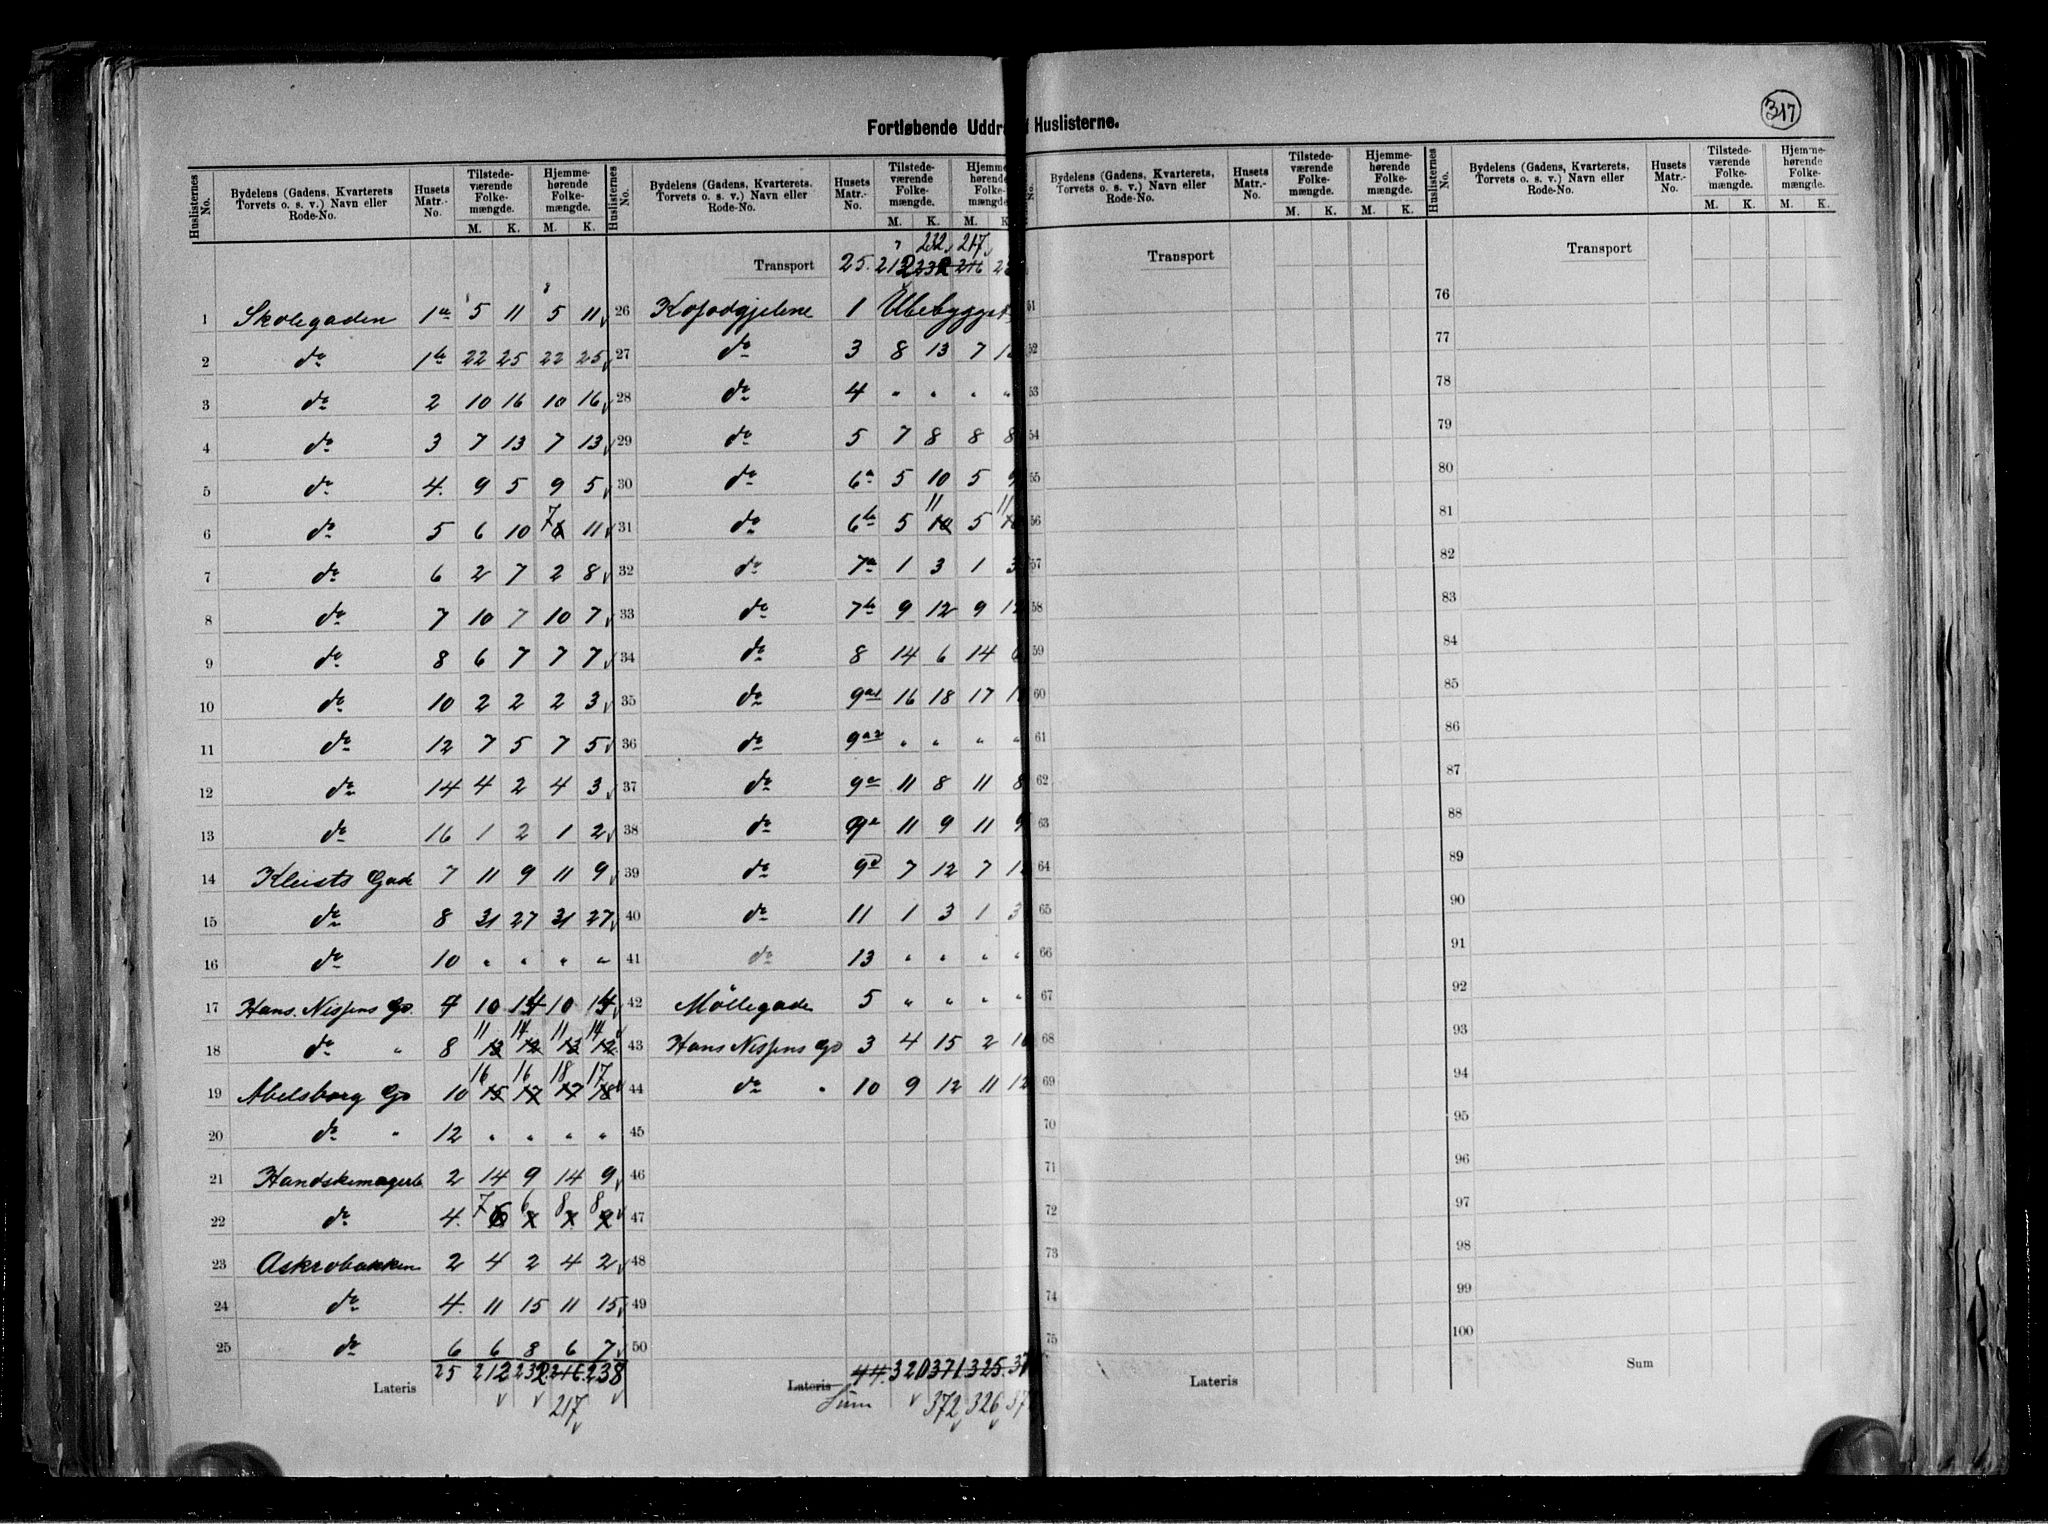 317
Fortløbende Uddr Huslisterne.
Huslisternes No. Bydelens (Gadens, Kvarterets Torvets o. s. v.) Navn eller Rode-No. Husets Matr.-No. Tilstedeværende Folkemængde. M. K. Hjemmehørende Folkemængde. M. K.
1 Skolegaden 1a 5 11 5 11
2 do 1b 22 25 22 25
3 do 2 10 16 10 16
4 do 3 7 13 7 13
5 do 4. 9 5 9 5
6 do 5 6 10 7 11
7 do 6 2 7 2 8
8 do 7 10 7 10 7
9 do 8 6 7 7 7
10 do 10 2 2 2 3
11 do 12 7 5 7 5
12 do 14 4 2 4 3
13 do 16 1 2 1 2
14 Kleists Gad 7 11 9 11 9
15 do 8 31 27 31 27
16 do 10 " " " "
17 Hans. Nissens Gd. 4 10 14 10 14
11 14 11 14
18 do " 8 13 12 13 12
16 16 18 17
19 Abelsborg Gd 10 15 17 17 18
20 do " 12 " " " "
21 Handskemagerb 2 14 9 14 9
7 6 8 8
22 do 4.
23 Askrobakken 2 4 2 4 2
24 do 4. 11 15 11 15
25 do 6 6 8 6 7
Lateris 25 212 232 216 238
217
Huslisternes No. Bydelens (Gadens, Kvarterets, Torvets o. s. v.) Navn eller Rode-No. Husets Matr.-No. Tilstedeværende Folkemængde. M. K. Hjemmehørende Folkemængde. M. K
232 217
Transport 25. 212 232 216
26 Kofodgjelene 1 Ubebygget
27 do 3 8 13 7
28 do 4 " " " "
29 do 5 7 8 8 8
30 do 6a 5 10 5 9
11 11
31 do 6b 5 10 5
32 do 7a 1 3 1 3
33 do 7b 9 12 9 12
34 do 8 14 6 14 6
35 do 9a1 16 18 17
36 do 9a2 " " " "
37 do 9c 11 8 11 8
38 do 9 11 9 11 9
39 do 9d 7 12 7 12
40 do 11 1 3 1 3
41 do 13 " " " "
42 Möllegade 5 " " " "
43 Hans Nissens Gd 3 4 15 2
44 do " 10 9 12 11 12
45
46
47
48
49
50
Lateris 44. 320 371. 325. 37
Sum 372 326 37
No. Bydelens (Gadens, Kvarterets, Torvets o. s. v.) Navn eller Rode-No. Husets Matr.-No. Tilstedeværende Folkemængde. M. K. Hjemmehørende Folkemængde. M. K.
Transport
51
52
53
54
55
56
57
58
59
60
61
62
63
64
65
66
67
68
69
70
71
72
73
74
75
Lateris
Huslisternes No. Bydelens (Gadens, Kvarterets, Torvets o. s. v.) Navn eller Rode-No. Husets Matr.-No. Tilstedeværende Folkemængde. M. K. Hjemmehørende Folkemængde. M. K.
Transport
76
77
78
79
80
81
82
83
84
85
86
87
88
89
90
91
92
93
94
95
96
97
98
99
100
Sum